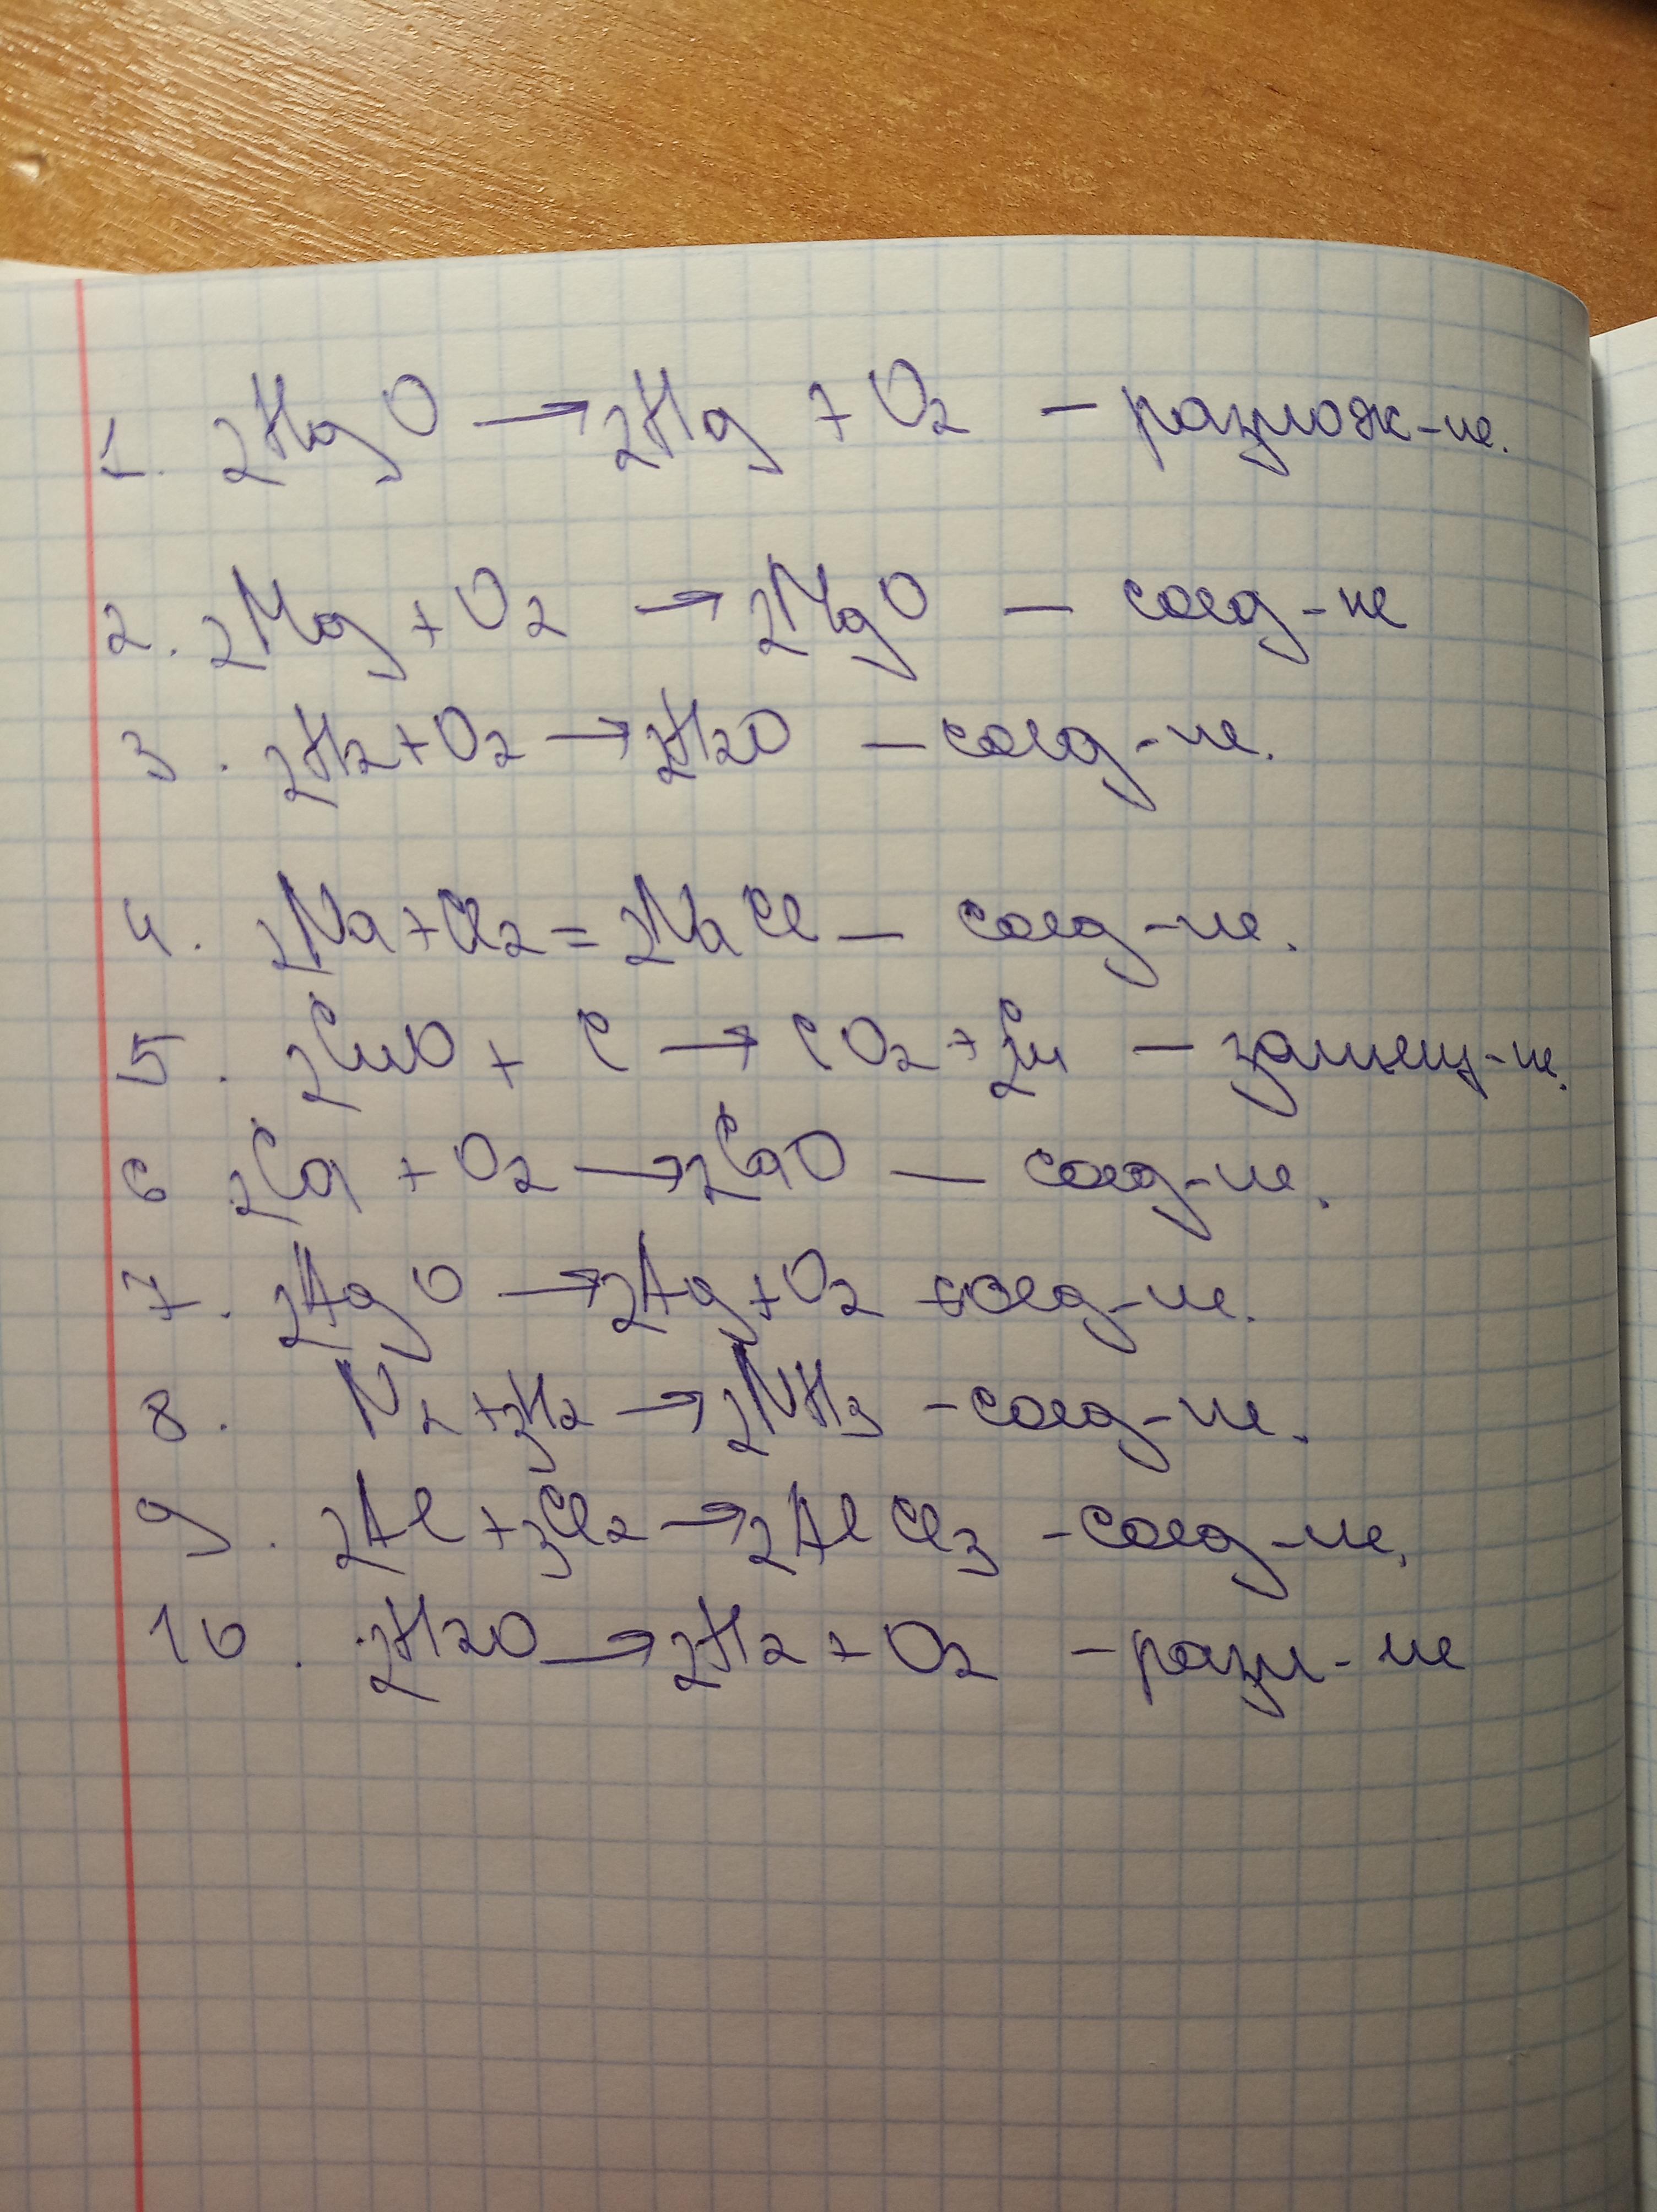 1. 2HgO → 2Hg + O2 – разлож-не.
2. 2Mg + O2 → 2MgO – соед-не
3. 2H2 + O2 → 2H2O – соед-не.
4. 2Na + Cl2 = 2NaCl – соед-не.
5. 2CuO + C → CO2 + 2Cu – замещ-не.
6 2Ca + O2 → 2CaO – соед-не.
7. 2AgO → 2Ag + O2 соед-не.
8. N2 + 3H2 → 2NH3 – соед-не.
9. 2Al + 3Cl2 → 2AlCl3 – соед-не.
10. 2H2O → 2H2 + O2 – разл-не